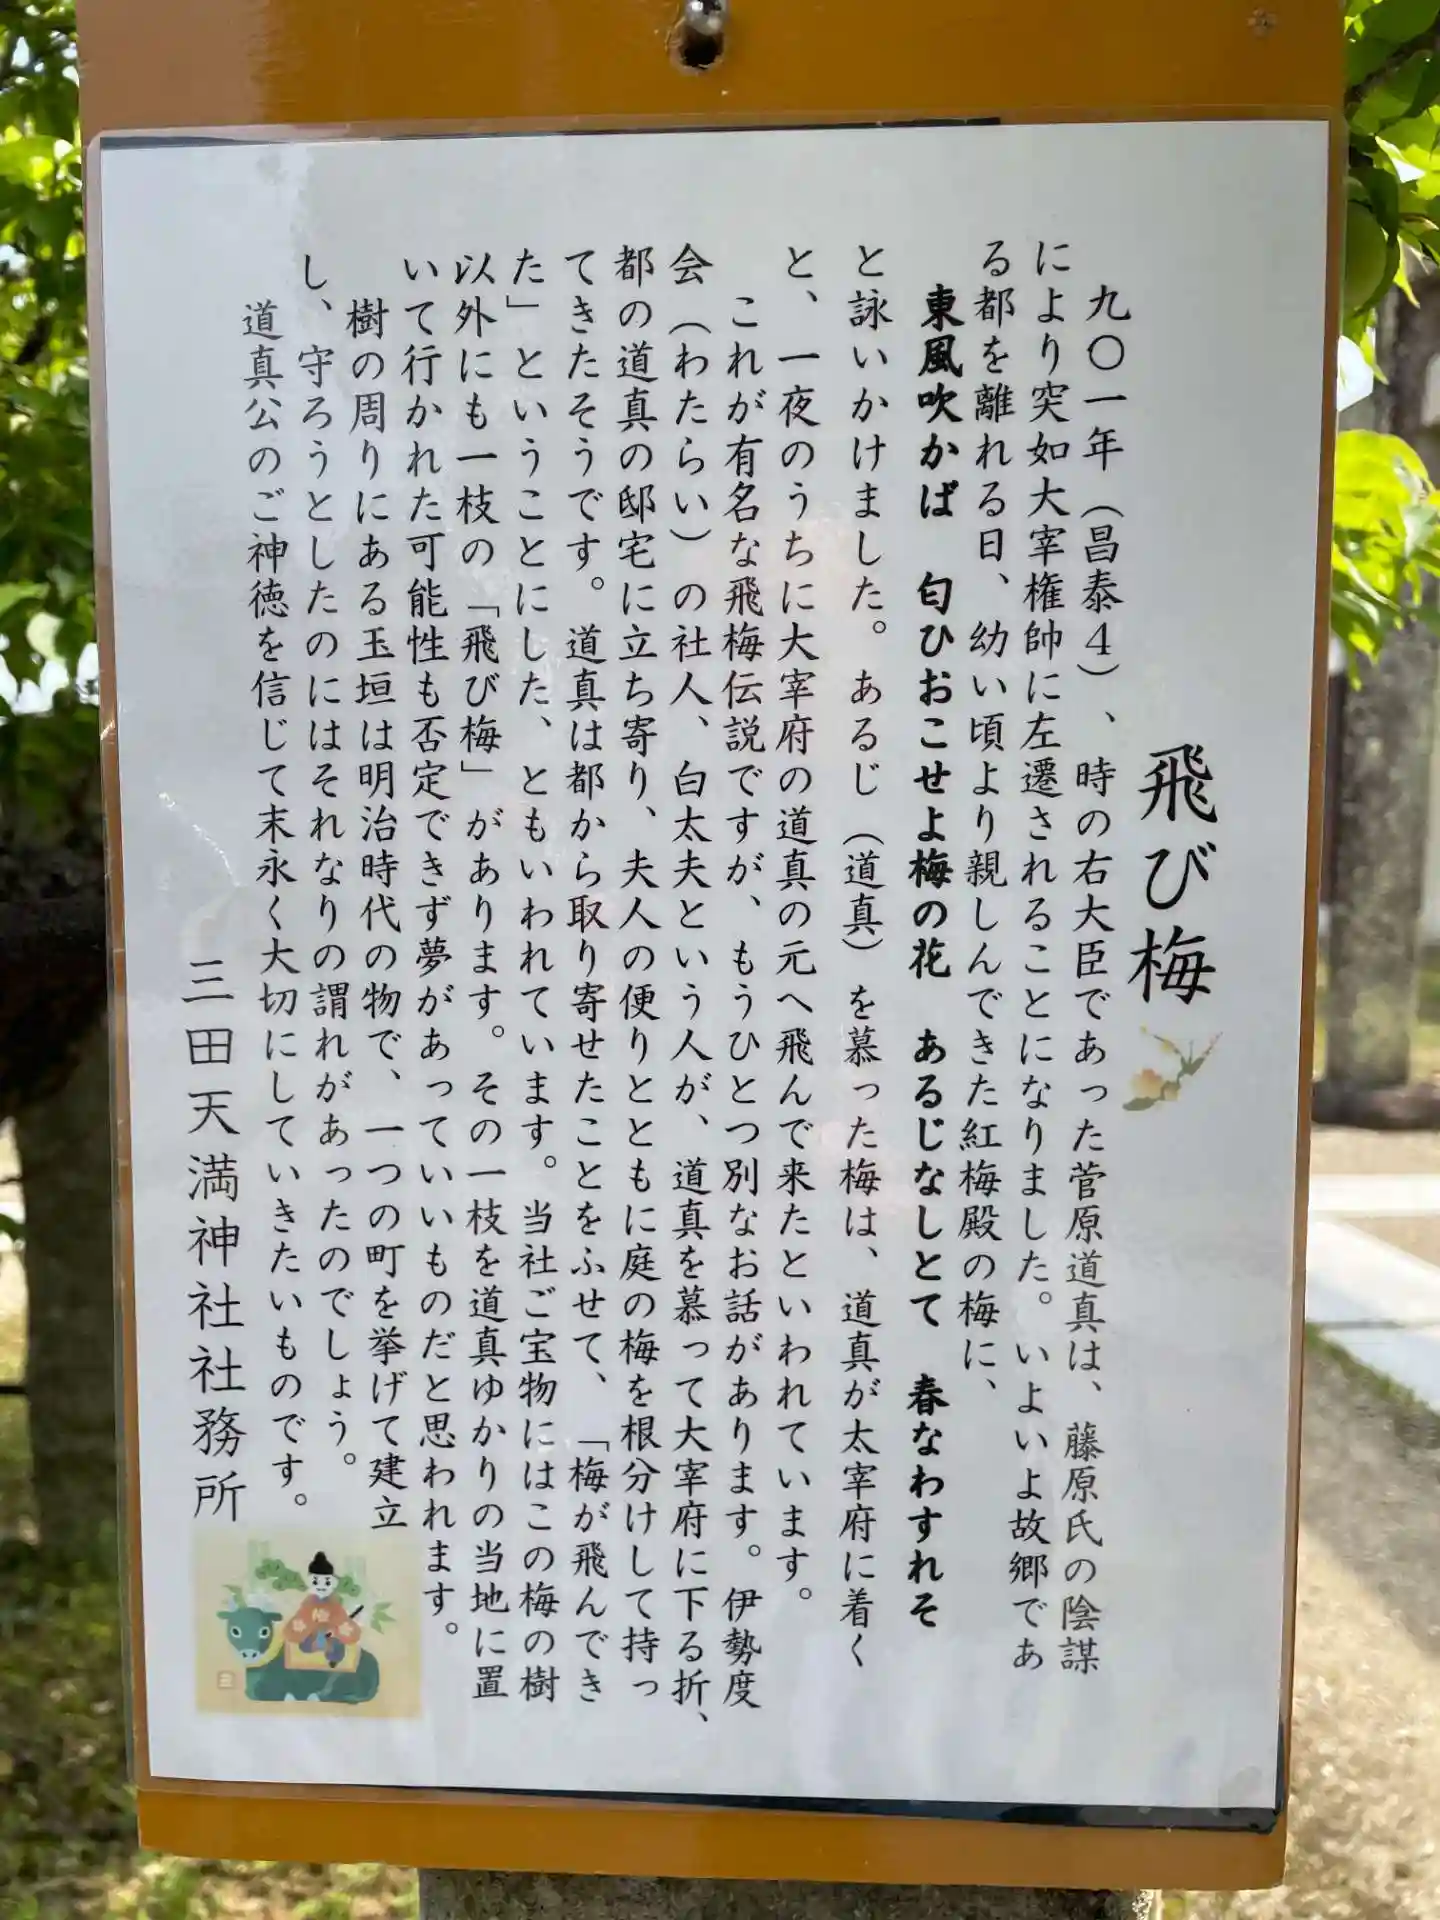 飛び梅
九〇一年（昌泰４）、時の右大臣であった菅原道真は、藤原氏の陰謀
により突如大宰権帥に左遷されることになりました。いよいよ故郷であ
る都を離れる日、幼い頃より親しんできた紅梅殿の梅に、
東風吹かば　匂ひおこせよ梅の花　あるじなしとて　春なわすれそ
と詠いかけました。あるじ（道真）を慕った梅は、道真が太宰府に着く
と、一夜のうちに大宰府の道真の元へ飛んで来たといわれています。
これが有名な飛梅伝説ですが、もうひとつ別なお話があります。伊勢度
会（わたらい）の社人、白太夫という人が、道真を慕って大宰府に下る折、
都の道真の邸宅に立ち寄り、夫人の便りとともに庭の梅を根分けして持っ
てきたそうです。道真は都から取り寄せたことをふせて、「梅が飛んでき
た」ということにした、ともいわれています。当社ご宝物にはこの梅の樹
以外にも一枝の「飛び梅」があります。その一枝を道真ゆかりの当地に置
いて行かれた可能性も否定できず夢があっていいものだと思われます。
樹の周りにある玉垣は明治時代の物で、一つの町を挙げて建立
し、守ろうとしたのにはそれなりの謂れがあったのでしょう。
道真公のご神徳を信じて末永く大切にしていきたいものです。
三田天満神社社務所